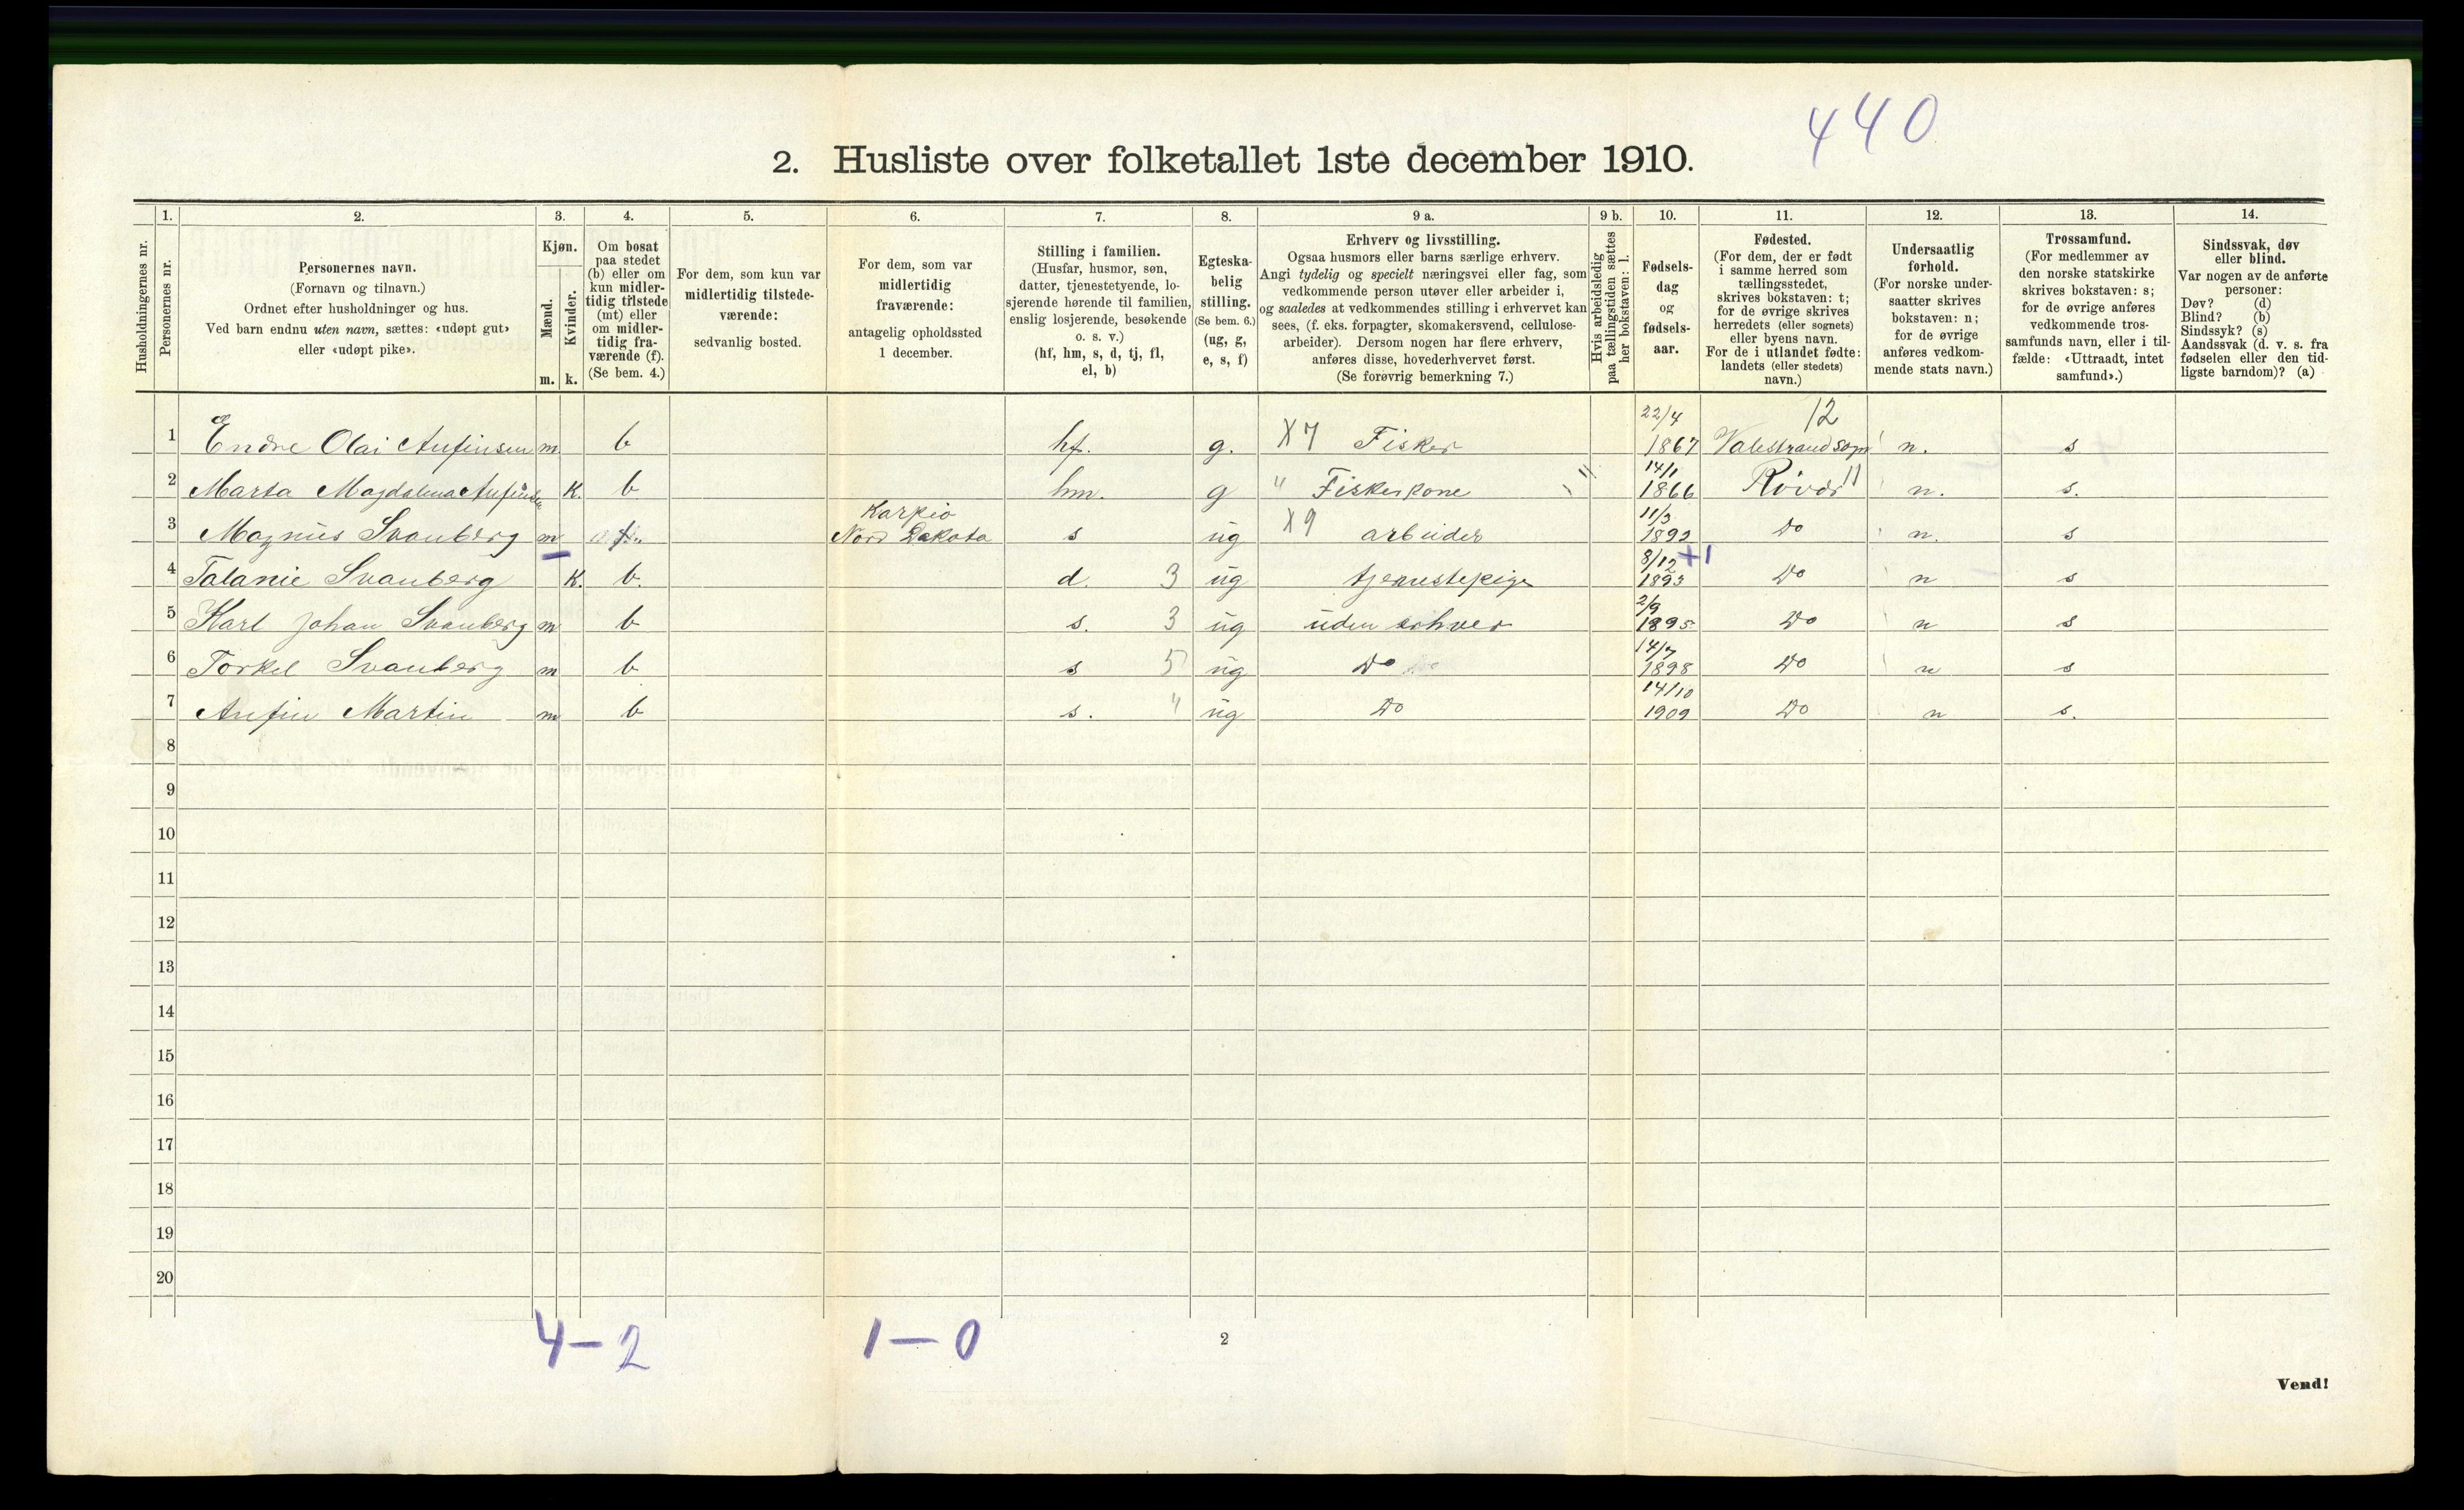 440
2. Husliste over folketallet 1ste december 1910.
Husholdningernes nr.
1.
Personernes nr.
2.
Personernes navn.
(Fornavn og tilnavn.)
Ordnet efter husholdninger og hus.
Ved barn endnu uten navn, sættes: «udøpt gut»
eller «udøpt pike».
3.
Kjøn.
Mænd.
Kvinder.
m. k.
4.
Om bosat
paa stedet
(b) eller om
kun midler-
tidig tilstede
(mt) eller
om midler-
tidig fra-
værende (f).
(Se bem. 4.)
5.
For dem, som kun var
midlertidig tilstede-
værende:
sedvanlig bosted.
6.
For dem, som var
midlertidig
fraværende:
antagelig opholdssted
1 december.
7.
Stilling i familien.
(Husfar, husmor, søn,
datter, tjenestetyende, lo-
sjerende hørende til familien,
enslig losjerende, besøkende
o. s. v.)
(hf, hm, s, d, tj, fl,
el, b)
8.
Egteska-
belig
stilling.
(Se bem. 6.)
(ug, g,
e, s, f)
9 a.
Erhverv og livsstilling.
Ogsaa husmors eller barns særlige erhverv.
Angi tydelig og specielt næringsvei eller fag, som
vedkommende person utøver eller arbeider i,
og saaledes at vedkommendes stilling i erhvervet kan
sees, (f. eks. forpagter, skomakersvend, cellulose-
arbeider). Dersom nogen har flere erhverv,
anføres disse, hovederhvervet først.
(Se forøvrig bemerkning 7.)
9 b.
Hvis arbeidsledig
paa tællingstiden sættes
her bokstaven: l.
10.
Fødsels-
dag
og
fødsels-
aar.
11.
Fødested.
(For dem, der er født
i samme herred som
tællingsstedet,
skrives bokstaven: t;
for de øvrige skrives
herredets (eller sognets)
eller byens navn.
For de i utlandet fødte:
landets (eller stedets)
navn.)
12.
Undersaatlig
forhold.
(For norske under-
saatter skrives
bokstaven: n;
for de øvrige
anføres vedkom-
mende stats navn.)
13.
Trossamfund.
(For medlemmer av
den norske statskirke
skrives bokstaven: s;
for de øvrige anføres
vedkommende tros-
samfunds navn, eller i til-
fælde: «Uttraadt, intet
samfund».)
14.
Sindssvak, døv
eller blind.
Var nogen av de anførte
personer:
Døv? (d)
Blind? (b)
Sindssyk? (s)
Aandssvak (d. v. s. fra
fødselen eller den tid-
ligste barndom)? (a)
22/4 12
1 Endre Olai Anfinsen m b hf. g. X 7 Fisker 1867 Valestrand sogn n. s
14/1 11
2 Marta Magdalena Anfinsen K. b hm. g " Fiskerkone 1866 Rövær n. s.
Karpio 11/3
3 Magnus Svanberg m f. Nord Dakota s ug X 9 arbeider 1892 Do n. s
8/12 +1
4 Talanie Svanberg K. b. d. 3 ug tjenestepige 1893 Do n s
2/9
5 Karl Johan Svanberg m b s. 3 ug uden erhver 1895 Do n s
14/7
6 Torkel Svanberg m b s 5 ug Do 1898 Do n s
14/10
7 Anfin Martin m b s. " ug Do 1909 Do n s.
8
9
10
11
12
13
14
15
16
17
18
19
20
4-2 1-0
2
Vend!